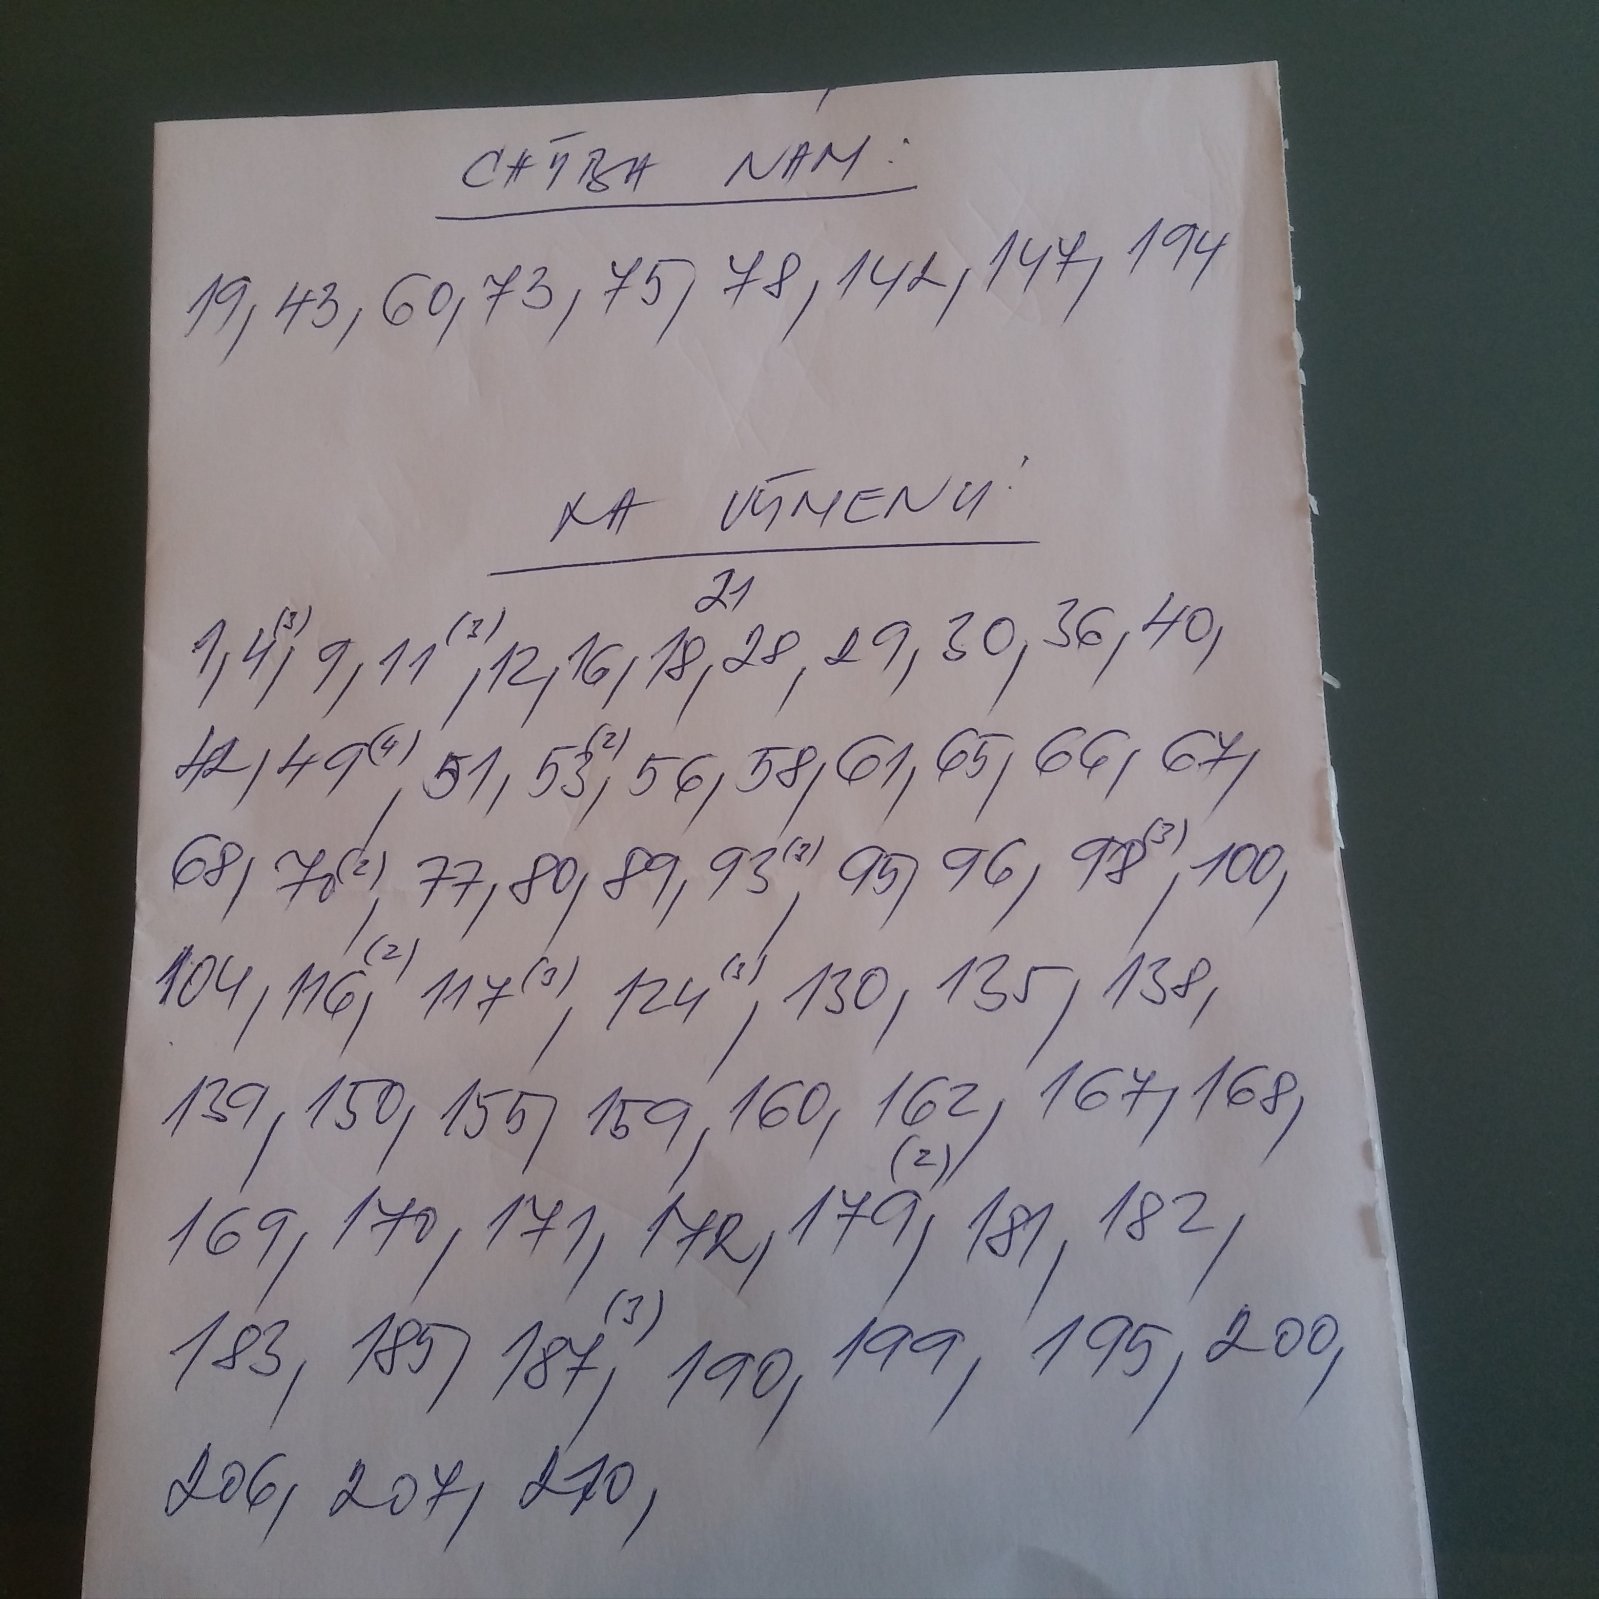 CHÝBA NÁM:
19, 43, 60, 73, 75, 78, 142, 147, 194
NA VÝMENU:
21
1, 4(3), 9, 11(3), 12, 16, 18, 28, 29, 30, 36, 40,
42, 49(4), 51, 53(2), 56, 58, 61, 65, 66, 67,
68, 70(2), 77, 80, 89, 93(3), 95, 96, 98(3), 100,
104, 116(2), 117(3), 124(3), 130, 135, 138,
139, 150, 155, 159, 160, 162, 167, 168,
169, 170, 171, 172, 179(2), 181, 182,
183, 185, 187(3), 190, 199, 195, 200,
206, 207, 210,